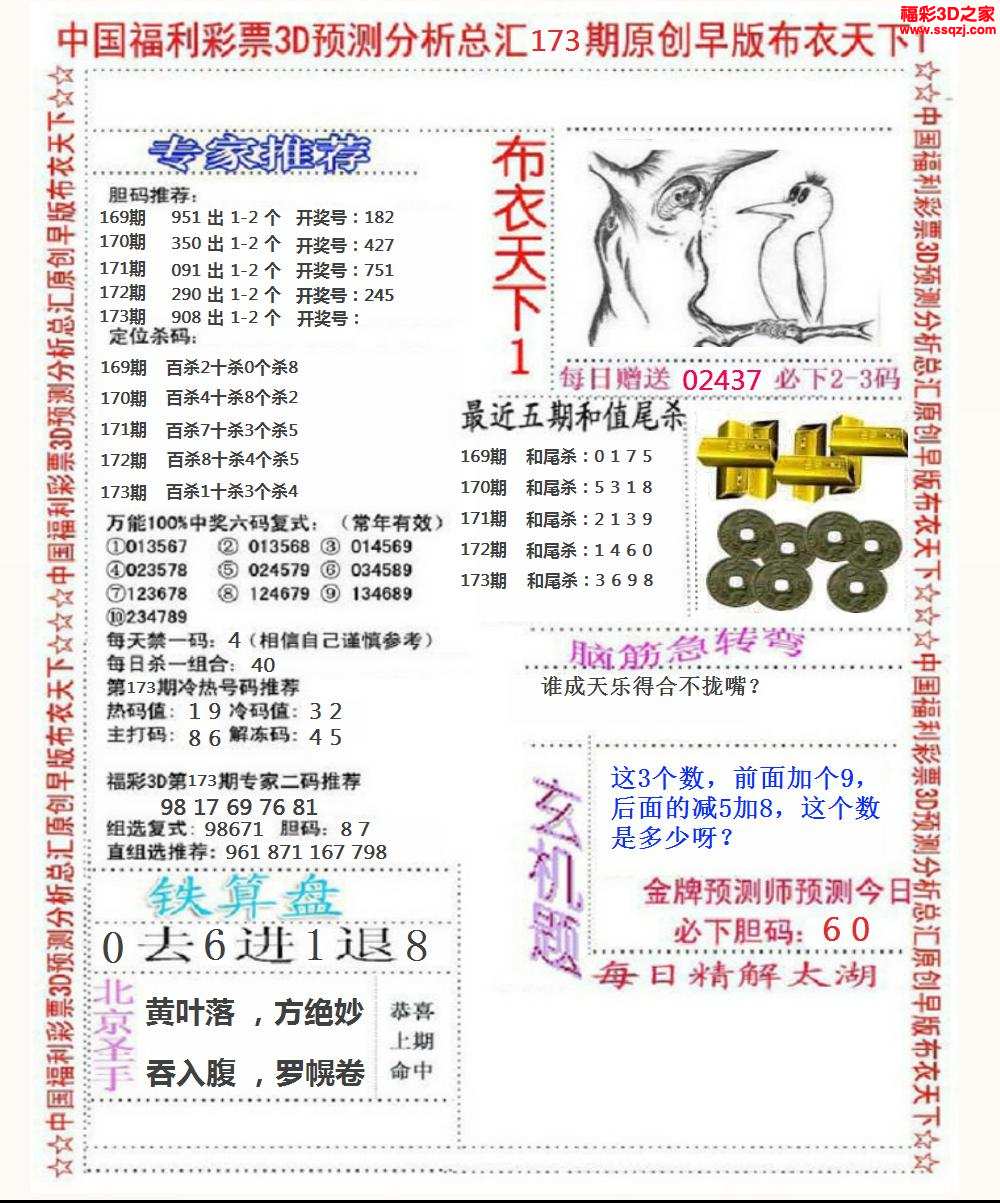 福彩3D之家
www.ssqzj.com
中国福利彩票3D预测分析总汇173期原创早版布衣天下1
☆☆中国福利彩票3D预测分析总汇原创早版布衣天下☆☆中国福利彩票3D预测分析总汇原创早版布衣天下☆☆
专家推荐
胆码推荐:
169期 951 出 1-2 个 开奖号：182
170期 350 出 1-2 个 开奖号：427
171期 091 出 1-2 个 开奖号：751
172期 290 出 1-2 个 开奖号：245
173期 908 出 1-2 个 开奖号：
定位杀码:
169期 百杀2十杀0个杀8
170期 百杀4十杀8个杀2
171期 百杀7十杀3个杀5
172期 百杀8十杀4个杀5
173期 百杀1十杀3个杀4
万能100%中奖六码复式：（常年有效）
①013567 ② 013568 ③ 014569
④023578 ⑤ 024579 ⑥ 034589
⑦123678 ⑧ 124679 ⑨ 134689
⑩234789
每天禁一码：4（相信自己谨慎参考）
每日杀一组合：40
第173期冷热号码推荐
热码值：1 9 冷码值：3 2
主打码：8 6 解冻码：4 5
福彩3D第173期专家二码推荐
98 17 69 76 81
组选复式: 98671 胆码: 8 7
直组选推荐: 961 871 167 798
铁算盘
0去6进1退8
北京圣手
黄叶落 ，方绝妙
吞入腹 ，罗幌卷
恭喜
上期
命中
布衣天下1
每日赠送 02437 必下2-3码
最近五期和值尾杀
169期 和尾杀：0 1 7 5
170期 和尾杀：5 3 1 8
171期 和尾杀：2 1 3 9
172期 和尾杀：1 4 6 0
173期 和尾杀：3 6 9 8
脑筋急转弯
谁成天乐得合不拢嘴？
玄机题
这3个数，前面加个9，
后面的减5加8，这个数
是多少呀？
金牌预测师预测今日
必下胆码：6 0
每日精解太湖
☆☆中国福利彩票3D预测分析总汇原创早版布衣天下☆☆☆中国福利彩票3D预测分析总汇原创早版布衣天下☆☆